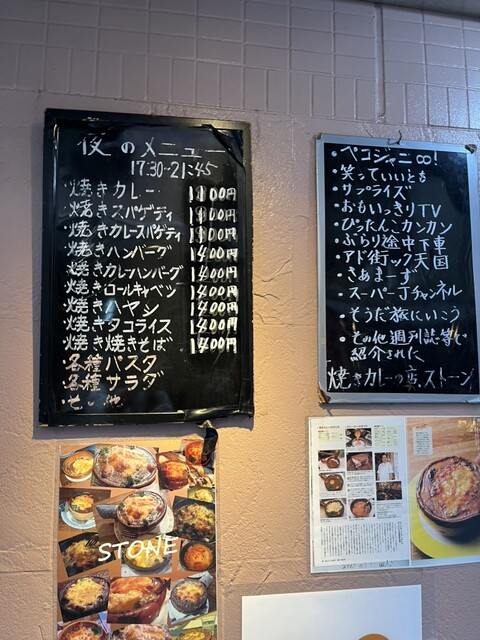 夜のメニュー
17:30~21:45
焼きカレー 1100円
焼きスパゲティ 1100円
焼きカレースパゲティ 1100円
焼きハンバーグ 1400円
焼きカレーハンバーグ 1400円
焼きロールキャベツ 1400円
焼きハヤシ 1400円
焼きタコライス 1400円
焼き焼きそば 1400円
・各種パスタ
・各種サラダ
・その他
・ペコジャニ∞!
・笑っていいとも
・サプライズ
・おもいっきりTV
・ぴったんこカンカン
・ぶらり途中下車
・アド街ック天国
・きあまーず
・スーパーJチャンネル
・そうだ旅にいこう
・その他週刊誌等で
紹介された
焼きカレーの店.ストーン
STONE